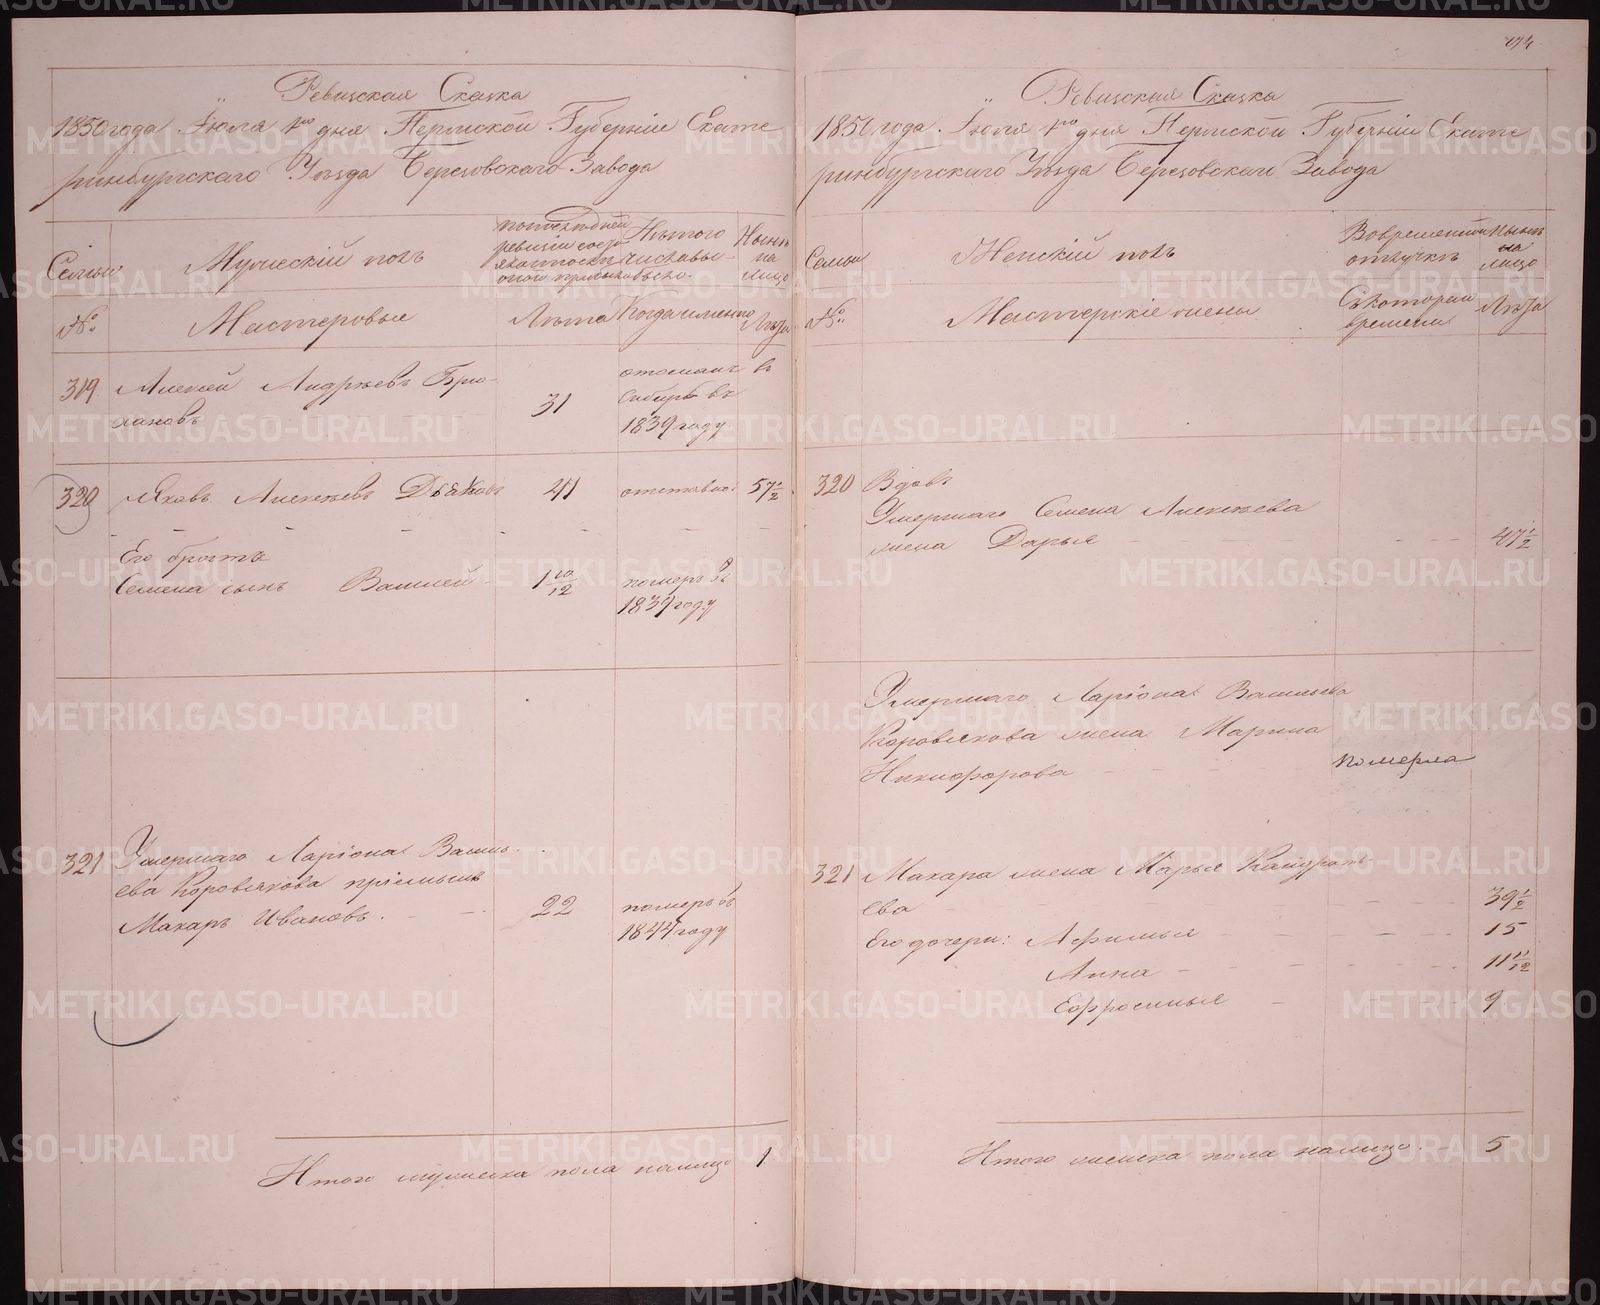 174
Ревизская Сказка
1850 года Июля 1го дня Пермской Губернiи Екате
ринбургскаго Уѣзда Березовскаго Завода
Семьи
Мужескiй полъ
По последней ревизiи состояло
Изъ того числа выбыло
Нынѣ на лицо
№
Мастеровые
Лѣта
Когда именно
Лѣта
319
Алексей Андреевъ
31
отосланъ в
Сибирь въ
1839 году
320
Яковъ Алексѣевъ Дьяковъ
41
отставно:
57 1/2
Его брата
Семена сынъ Василей
1 10/12
померъ въ
1839 году
321
Умершаго Ларiона Василь
ева Коровякова прiемышъ
Макаръ Ивановъ.
22
померъ въ
1844 году
Итого мужеска пола налицо 1
Ревизская Сказка
1850 года Июля 1го дня Пермской Губернiи Екате
ринбургскаго Уѣзда Березовскаго Завода
Семьи
Женскiй полъ
Во временной отлучкѣ
Нынѣ на лицо
№
Мастерскiе жены
Съ котораго времени
Лѣта
320
Вдовъ
Умершаго Семена Алексѣева
жена Дарья
47 1/2
Умершаго Ларiона Васильева
Коровякова жена Марина
Никифорова
померла
321
Макара жена Марья
ева
39 1/2
Его дочери: Афимья
15
Анна
11 11/12
Ефросинья
9
Итого женска пола налицо. 5
METRIKI.GASO-URAL.RU